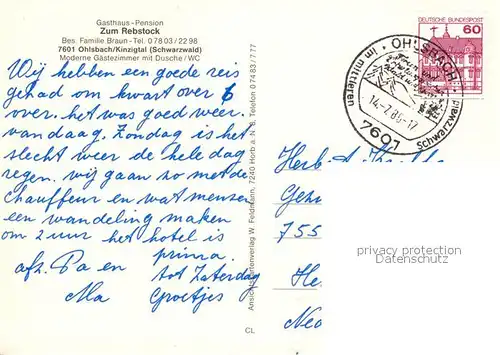 Gasthaus-Pension
Zum Rebstock
Bes. Familie Braun - Tel. 0 78 03 / 22 98
7601 Ohlsbach/Kinzigtal (Schwarzwald)
Moderne Gästezimmer mit Dusche / WC
Wij hebben een goede reis
gehad om kwart over 6
over. het was goed weer.
vandaag. Zondag is het
slecht weer de hele dag
regen. wij gaan zo met de
chauffeur en wat mensen
een wandeling maken
om 2 uur het hotel is
prima.
afz. Pa en tot Zaterdag
Ma Groetjes
Ansichtskartenverlag W. Feldmann, 7240 Horb a. N. Telefon 0 74 83 / 7 77
CL
DEUTSCHE BUNDESPOST
60
OHLSBACH
im mittleren Schwarzwald
14.-7.86.-17
7601
Herb
755
privacy protection
Datenschutz